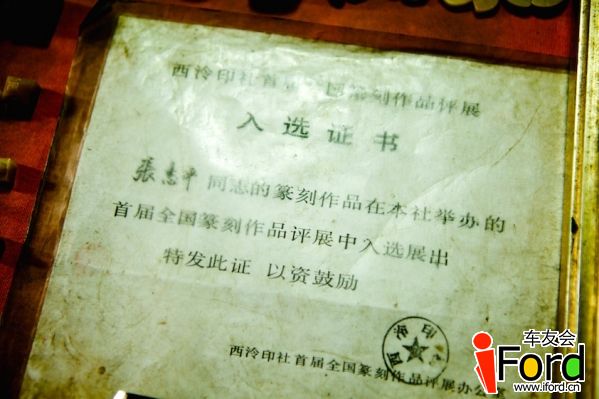 西泠印社首届全国篆刻作品评展
入选证书
同志的篆刻作品在本社举办的
首届全国篆刻作品评展中入选展出
特发此证 以资鼓励
西泠印
西泠印社首届全国篆刻作品评展办公
车友会
iFord
www.iford.cn